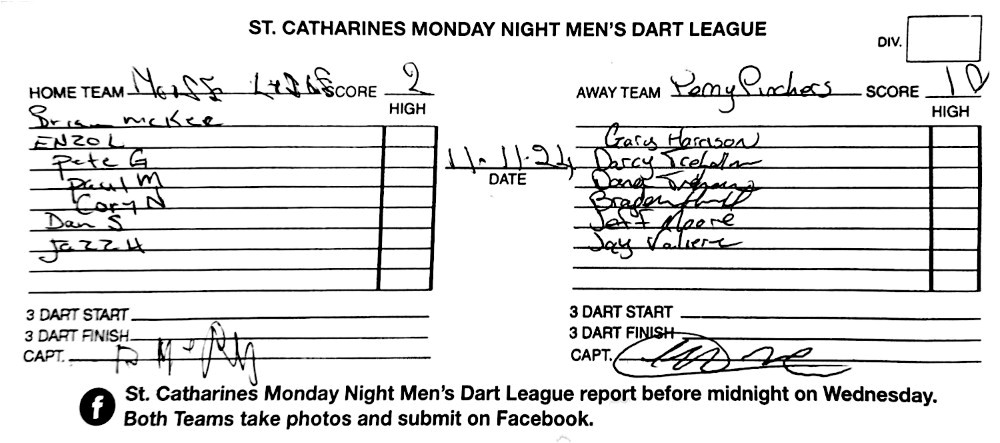 ST. CATHARINES MONDAY NIGHT MEN'S DART LEAGUE
DIV.
HOME TEAM SCORE 2
HIGH
Brian McKee
ENZO L
Pete G
Paul M
Cory N
Dan S
Jazz H
11-11-24
DATE
AWAY TEAM Penny Pinchers SCORE 10
HIGH
Gary Harrison
Darcy
Dana
Braden
Jeff Moore
Jay
3 DART START
3 DART FINISH
CAPT.
3 DART START
3 DART FINISH
CAPT.
f St. Catharines Monday Night Men's Dart League report before midnight on Wednesday.
Both Teams take photos and submit on Facebook.